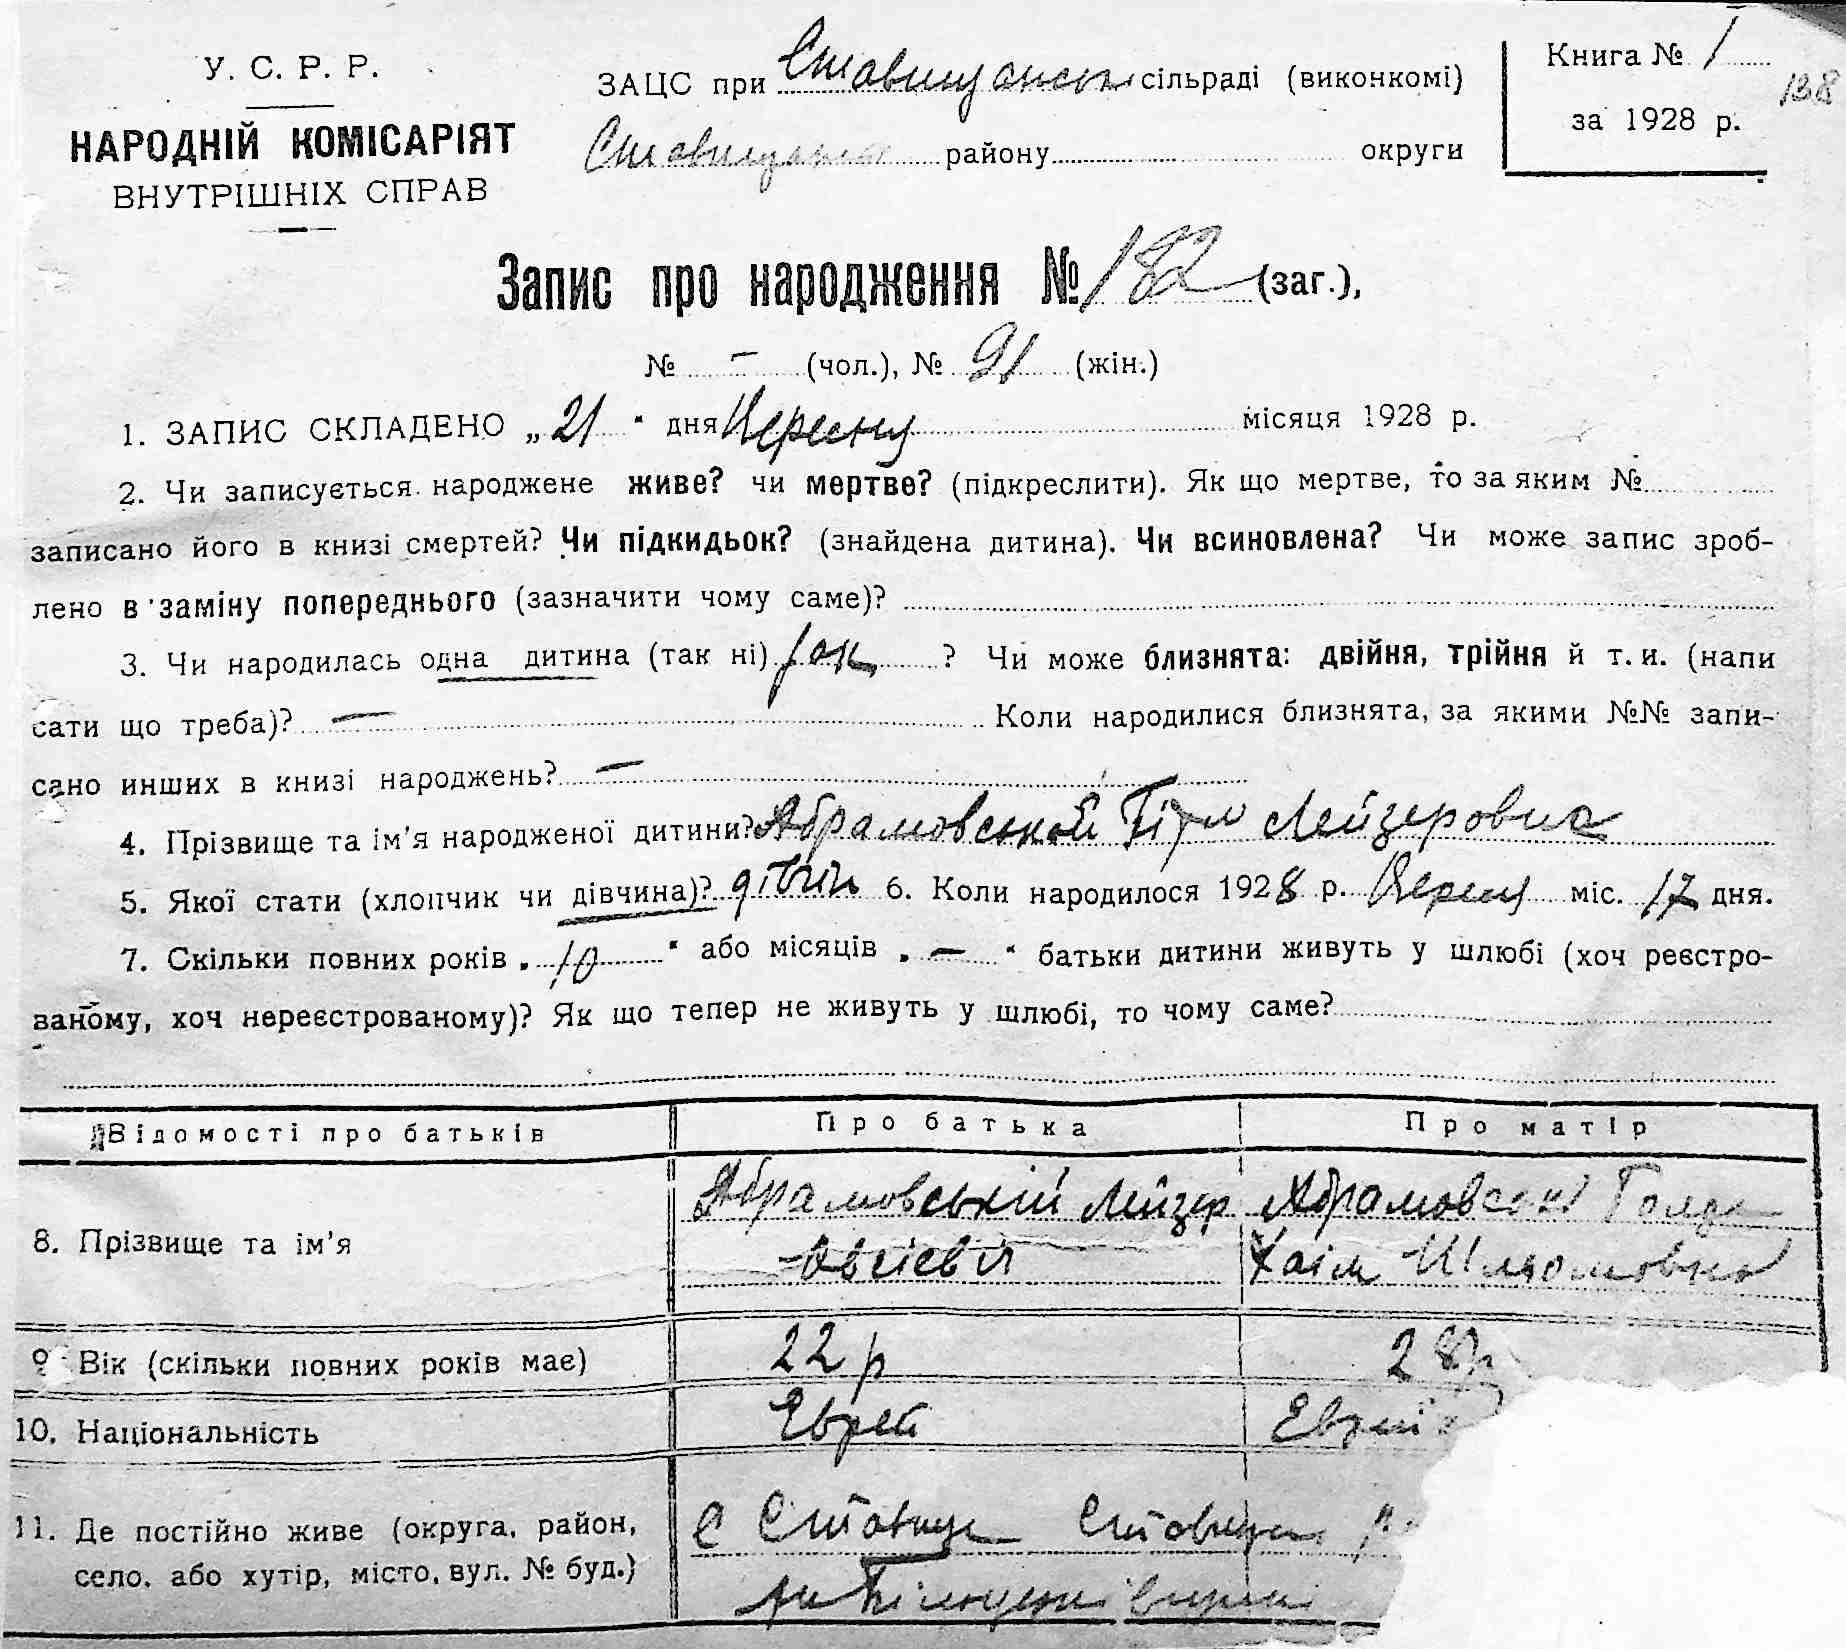 У. С. Р. Р.
НАРОДНІЙ КОМІСАРІЯТ
ВНУТРІШНІХ СПРАВ
ЗАЦС при Ставищанськ сільраді (виконкомі)
Ставищанск району округи
Книга № 1
за 1928 р.
138
Запис про народження № 182 (заг.),
№ – (чол.), № 91 (жін.)
1. ЗАПИС СКЛАДЕНО „21“ дня Вересня місяця 1928 р.
2. Чи записується народжене живе? чи мертве? (підкреслити). Як що мертве, то за яким №
записано його в книзі смертей? Чи підкидьок? (знайдена дитина). Чи всиновлена? Чи може запис зроб-
лено в заміну попереднього (зазначити чому саме)?
3. Чи народилась одна дитина (так ні) так ? Чи може близнята: двійня, трійня й т. и. (напи
сати що треба)? — Коли народилися близнята, за якими №№ запи-
сано инших в книзі народжень? —
4. Прізвище та ім'я народженої дитини? Абрамовськой Лейзеровна
5. Якої стати (хлопчик чи дівчина)? дівчин 6. Коли народилося 1928 р. Вересня міс. 17 дня.
7. Скільки повних років „10“ або місяців „—“ батьки дитини живуть у шлюбі (хоч реєстро-
ваному, хоч нереєстрованому)? Як що тепер не живуть у шлюбі, то чому саме?
Відомості про батьків
Про батька
Про матір
8. Прізвище та ім'я
Абрамовській Лейзер
Абрамовські Голда
Хаім Шльомовна
9. Вік (скільки повних років має)
22 р
28 р
10. Національність
Еврей
11. Де постійно живе (округа, район,
село. або хутір, місто, вул. № буд.)
с Ставище Ставищан